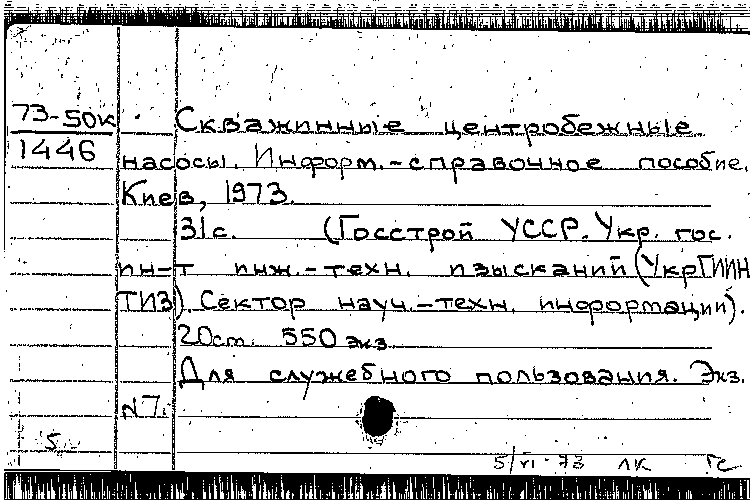 73-50к
1446
Скважинные центробежные
насосы. Информ.-справочное пособие.
Киев, 1973.
31с. (Госстрой УССР. Укр. гос.
ин-т инж.-техн. изысканий (УкрГИИН
ТИЗ). Сектор науч.-техн. информации).
20см. 550 экз.
Для служебного пользования. Экз.
N7.
5
5/VI-73 лк Гс